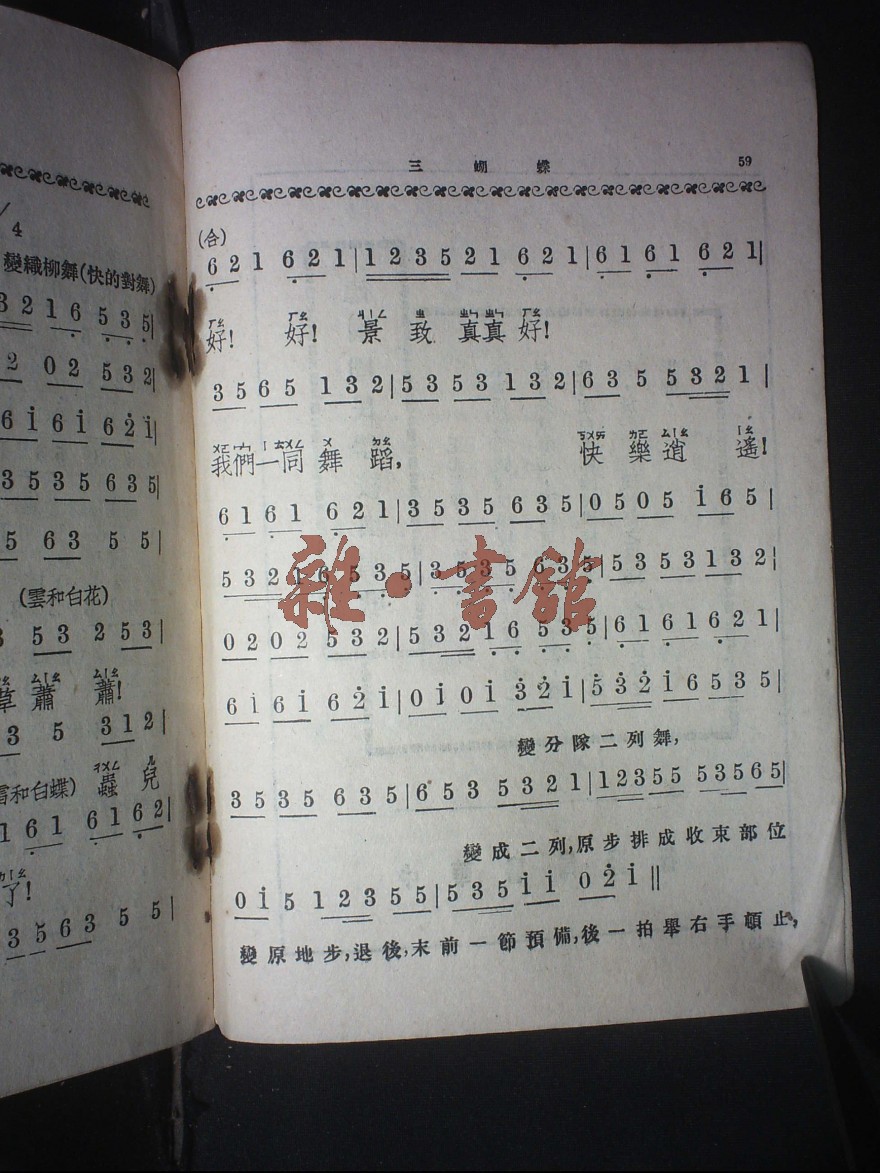 4
變織柳舞(快的對舞)
3 2 1 6 5 3 5|
2 0 2 5 3 2|
6 i 6 i 6 2 i|
3 5 3 5 6 3 5|
5 6 3 5 5|
(雲和白花)
5 3 2 5 3|
草 蕭 蕭!
3 5 3 1 2|
和白蝶) 蟲 兒
1 6 1 6 1 6 2|
了!
3 5 6 3 5 5|
三 蝴 蝶 59
(合)
6 2 1 6 2 1|1 2 3 5 2 1 6 2 1|6 1 6 1 6 2 1|
好! 好! 景 致 真真 好!
3 5 6 5 1 3 2|5 3 5 3 1 3 2|6 3 5 5 3 2 1|
我們一同 舞 蹈, 快 樂 逍 遙!
6 1 6 1 6 2 1|3 5 3 5 6 3 5|0 5 0 5 i 6 5|
5 3 2 1 6 5 3 5|3 5 3 5 6 3 5|5 3 5 3 1 3 2|
雜·書館
0 2 0 2 5 3 2|5 3 2 1 6 5 3 5|6 1 6 1 6 2 1|
6 i 6 i 6 2 i|0 i 0 i 3 2 i|5 3 2 i 6 5 3 5|
變分隊二列舞,
3 5 3 5 6 3 5|6 5 3 5 3 2 1|1 2 3 5 5 5 3 5 6 5|
變成二列,原步排成收束部位
0 i 5 1 2 3 5 5|5 3 5 i i 0 2 i‖
變原地步,退後,末前一節預備,後一拍舉右手頓止,